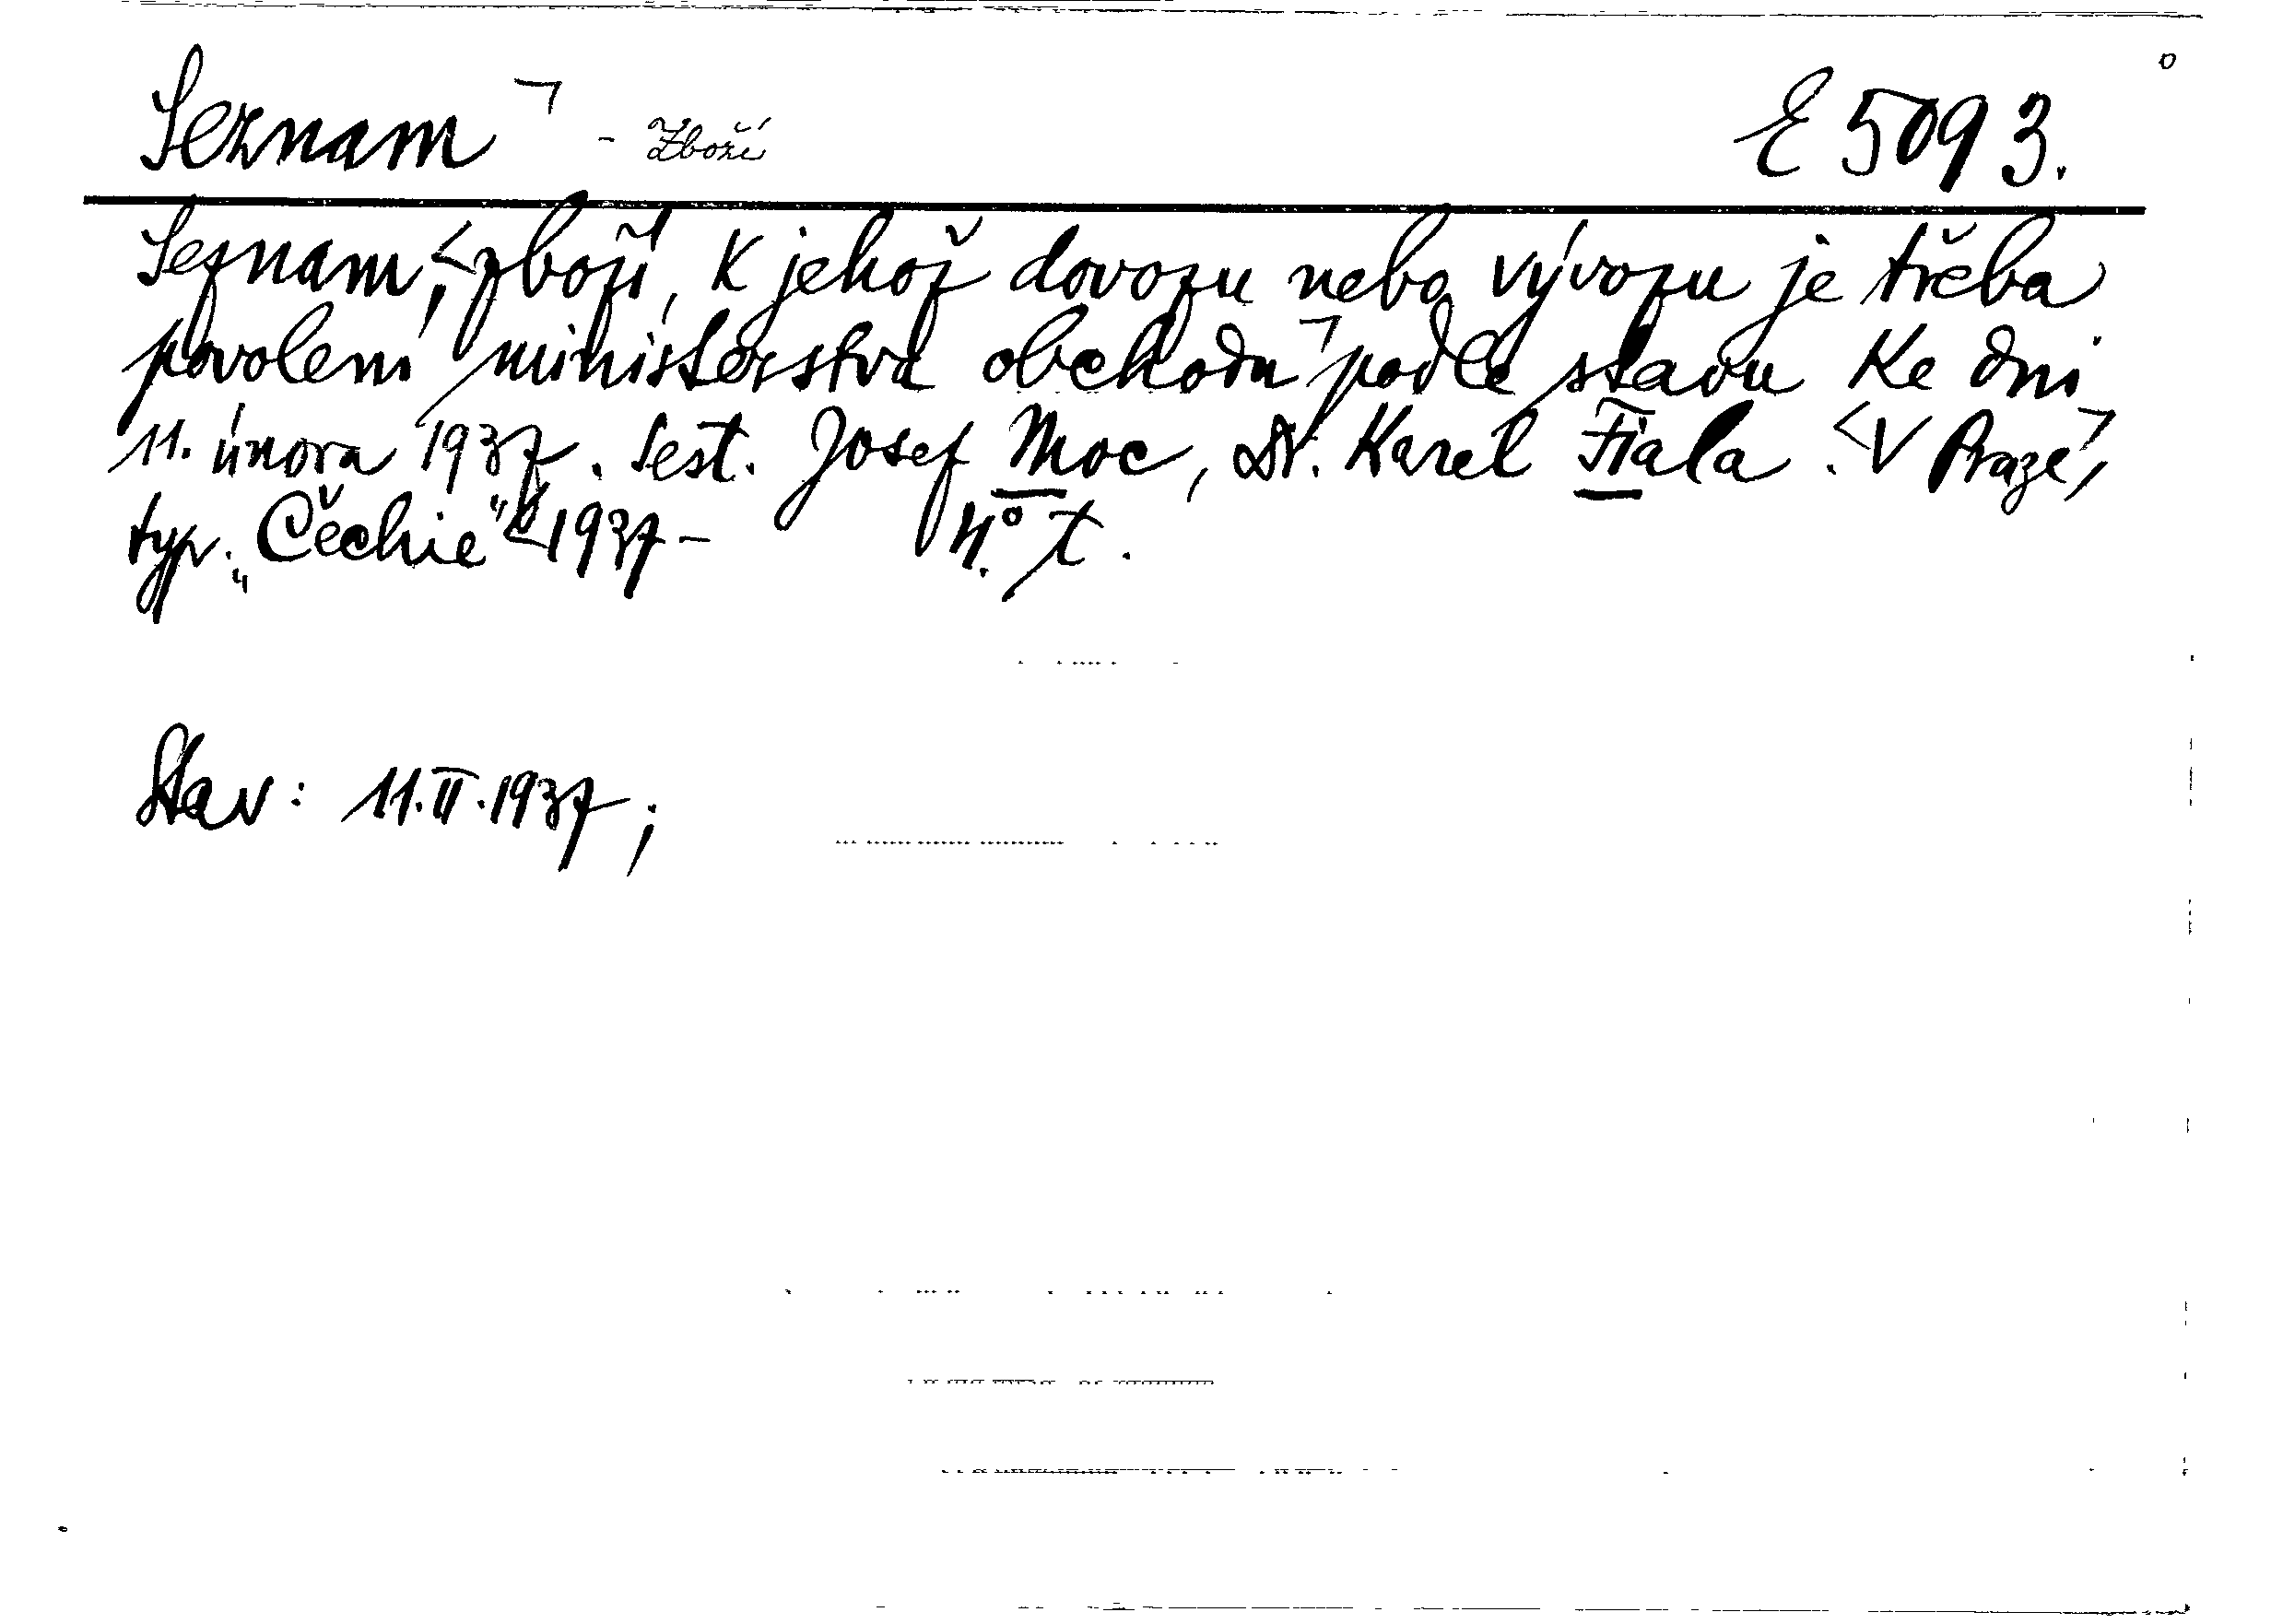 Seznam ¬ - Zboží E 5093.
Seznam, <zboží, k jehož dovozu nebo vývozu je třeba
povolení ministerstva obchodu¬ podle stavu ke dni
11. února 1937. Sest. Josef Moc, Dr. Karel Fiala. <V Praze¬,
typ. „Čechie“ <1937- 4.° t.
Stav: 11.II.1937;